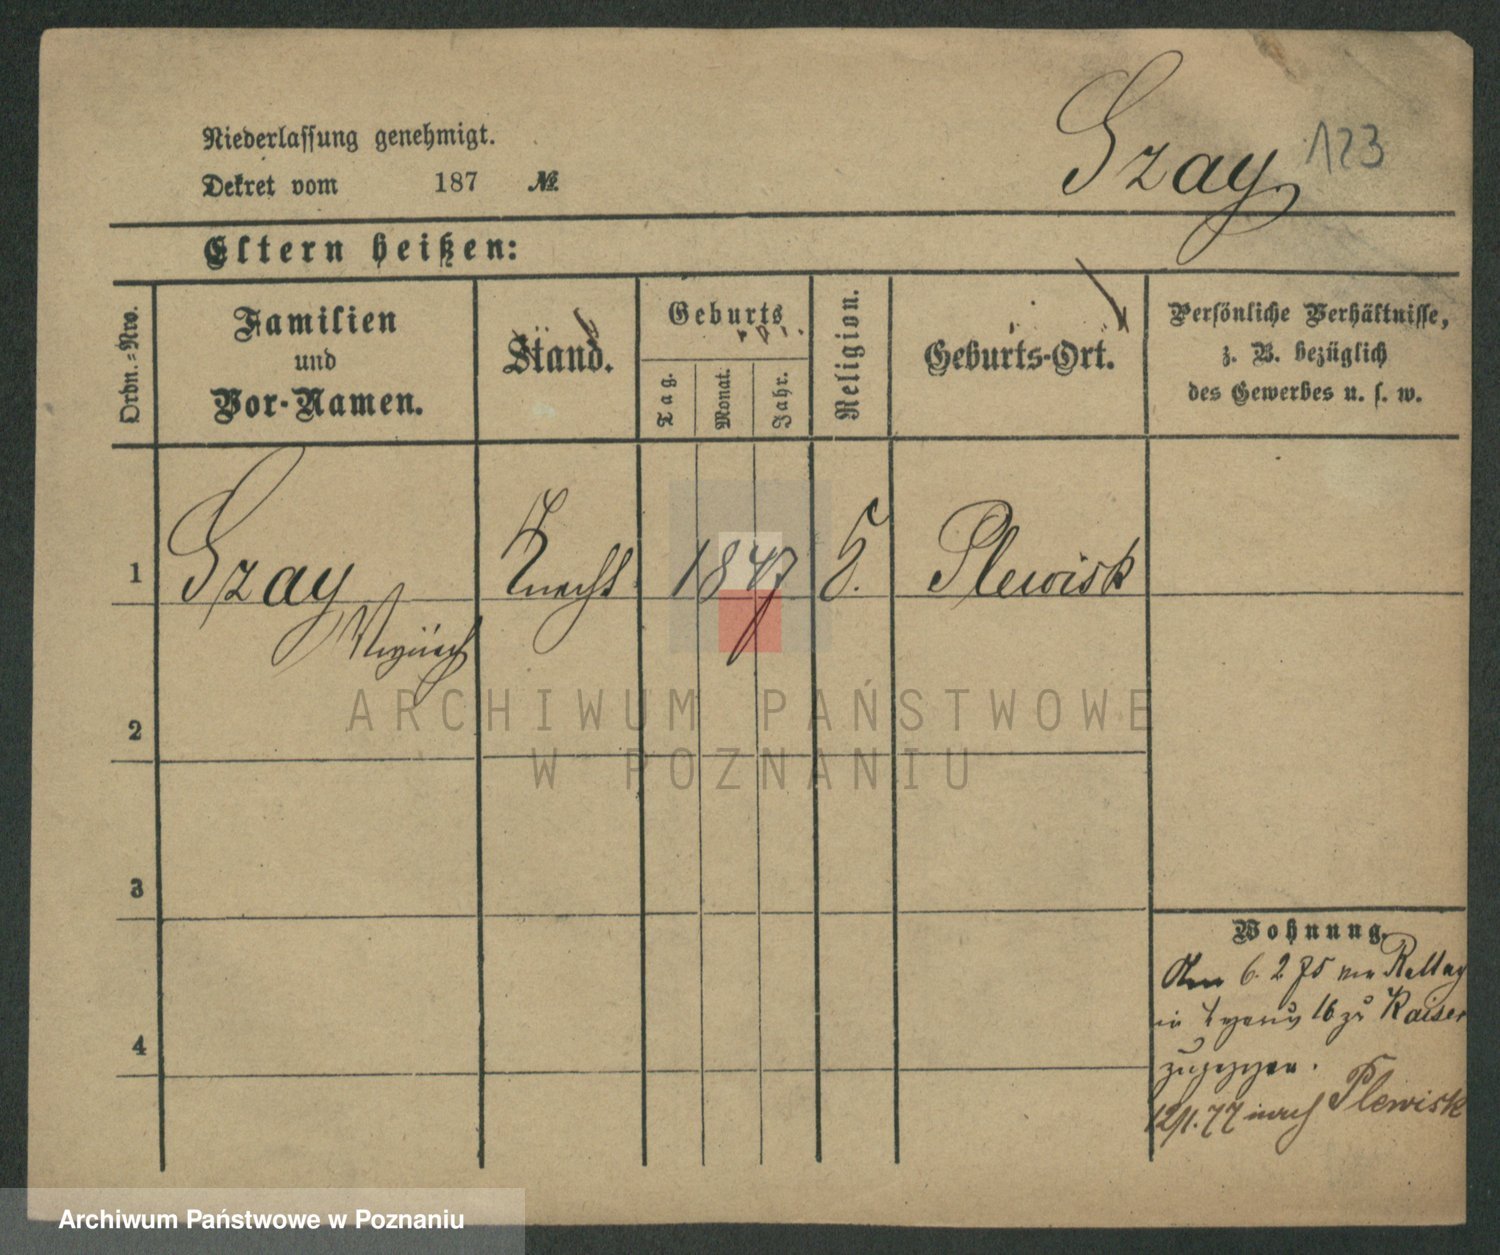 Niederlassung genehmigt.
Dekret vom 187 №
Szay
123
Eltern heißen:
Ordn.=Nro.
Familien
und
Vor-Namen.
Stand.
Geburts
Tag.
Monat.
Jahr.
Religion.
Geburts-Ort.
Persönliche Verhältnisse,
z. B. bezüglich
des Gewerbes u. s. w.
1
Szay
Knecht
1847
Plewisk
2
3
4
Wohnung.
6. 2 75 von Rattay
in 16 zu Kaiser
zugezogen.
12/1. 77 nach Plewisk
ARCHIWUM PAŃSTWOWE
W POZNANIU
Archiwum Państwowe w Poznaniu